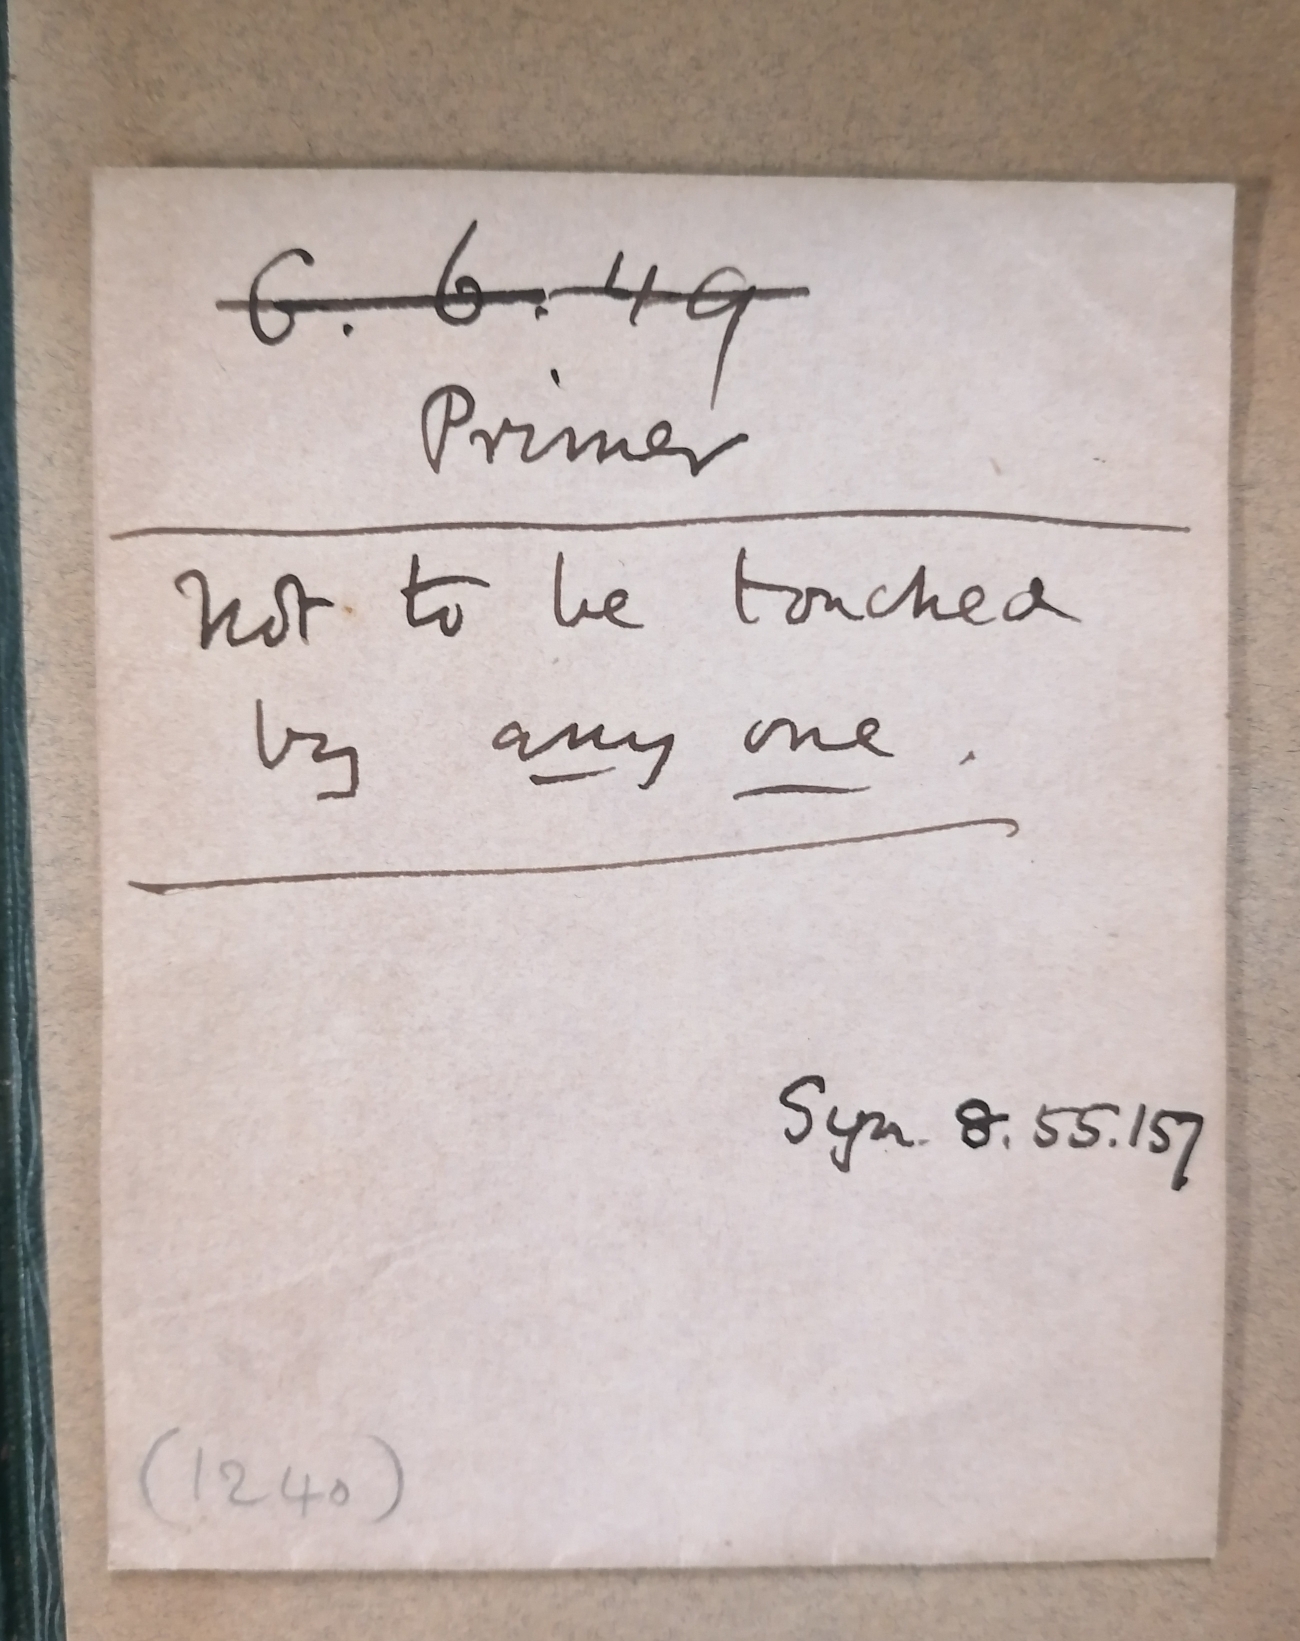 G. 6. 49
Primer
Not to be touched
by any one.
Syn. 8. 55. 157
(1240)